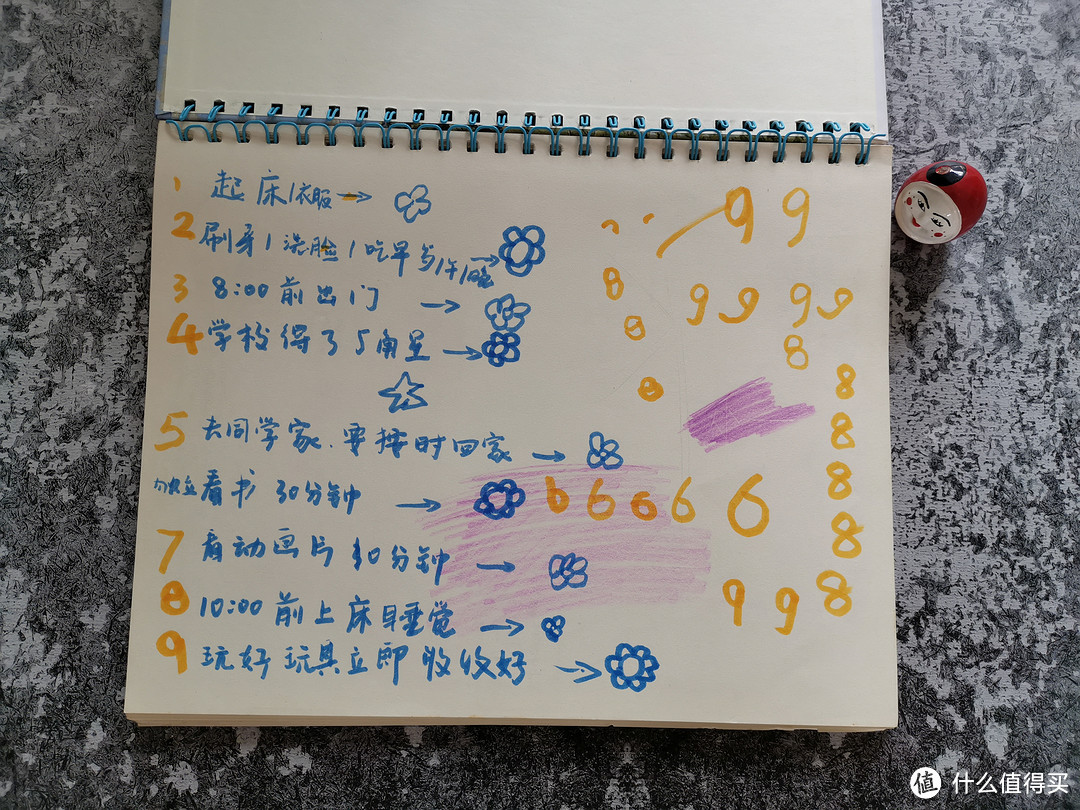 1 起床/衣服→
2 刷牙/洗脸/吃早/午/晚→
3 8:00前出门→
4 学校得了5角星→
5 去同学家.要按时回家→
看书30分钟→ 6 6 6 6 6
7 看动画片30分钟→
8 10:00前上床睡觉→
9 玩好玩具立即收收好→
9 9
8 9 9 9 9
8 8
8 8
8
8
8
9 9 8
值 什么值得买